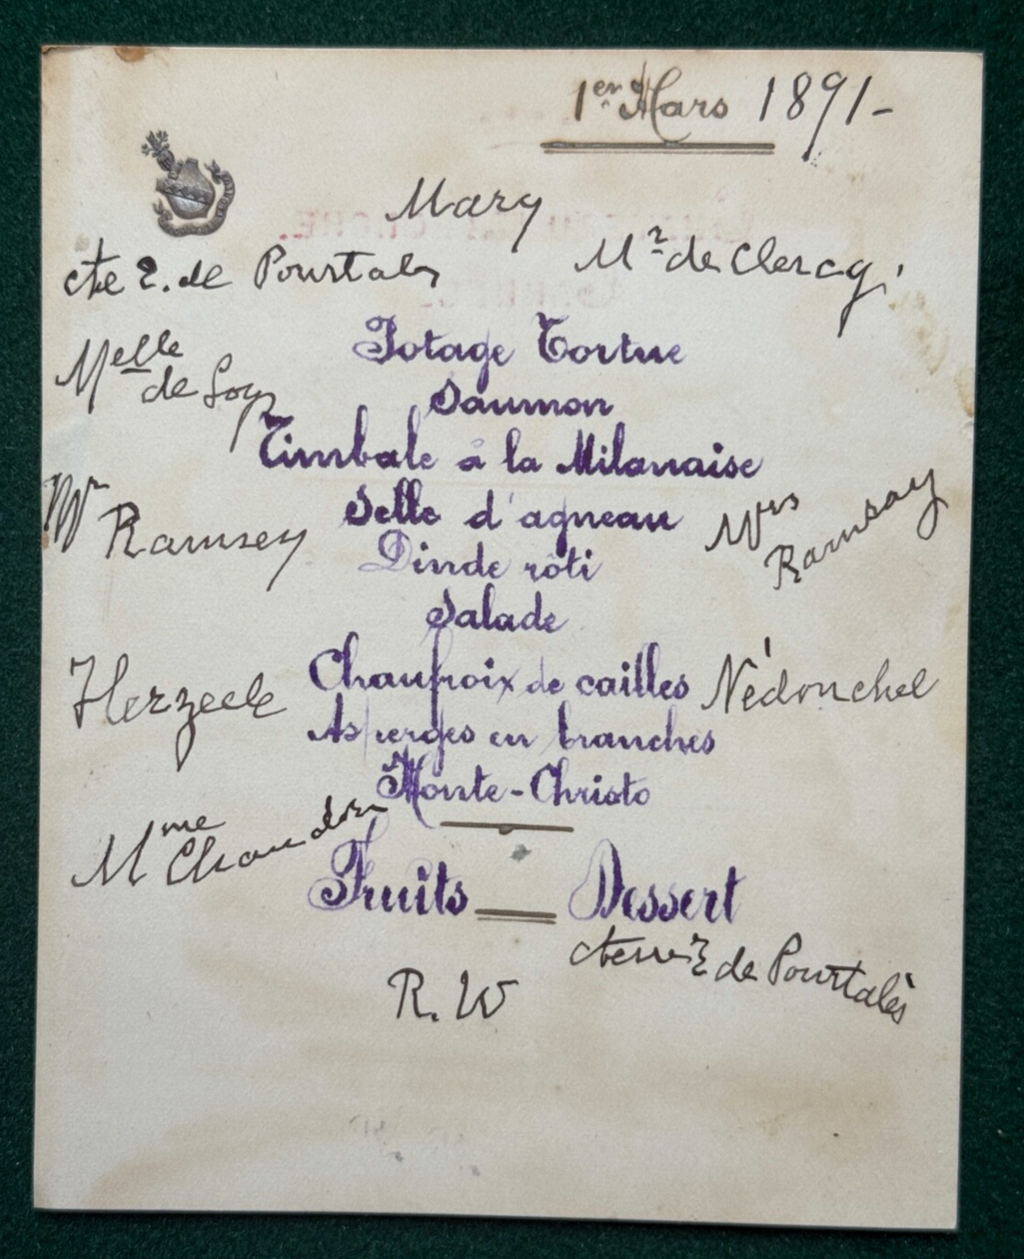 1er Mars 1891-
Mary
cte E. de Pourtalès
Mr de Clercq,
Potage Tortue
Melle
de Loys
Saumon
Timbale à la Milanaise
Mr
Ramsey
Selle d'agneau
Mrs
Ramsay
Dinde rôti
Salade
Herzeele
Chaufroix de cailles
Nédonchel
Asperges en branches
Monte-Christo
Mme
Chandon
Fruits Dessert
R. W
ctesse E. de Pourtalès